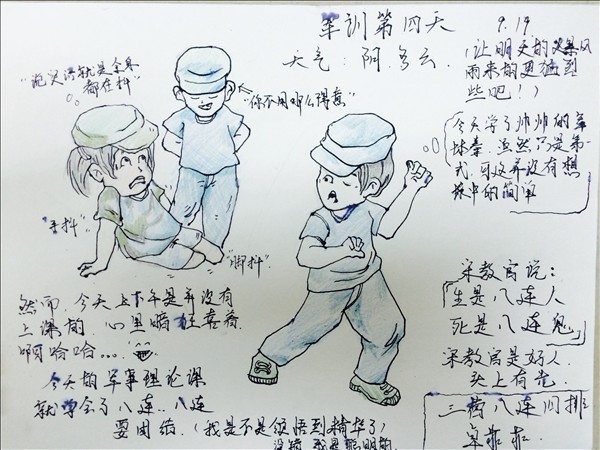 军训第四天
9.19
天气：阿，多云
（让明天的暴风
雨来的更猛到
些吧！）
都在抖"
"你不用那么得意"
今天学了帅帅的军
体拳，虽然只是第一
式，可这并没有想
象中的简单
"手抖"
"脚抖"
宋教官说：
生是八连人
死是八连鬼
宋教官是好人
头上有光
三营八连四排
然而，今天上下午是并没有
上课的，心里暗
啊哈哈...
今天的军事理论课
就学会了八连..八连
要团结.（我是不是领悟到精华了）